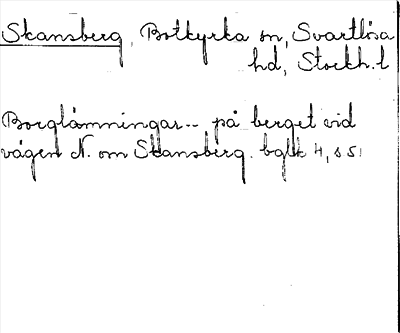 Skansberg, Botkyrka sn, Svartlösa
hd, Stockh. l
Borglämningar.. på berget vid
vägen N. om Skansberg. bglk 4, s 51